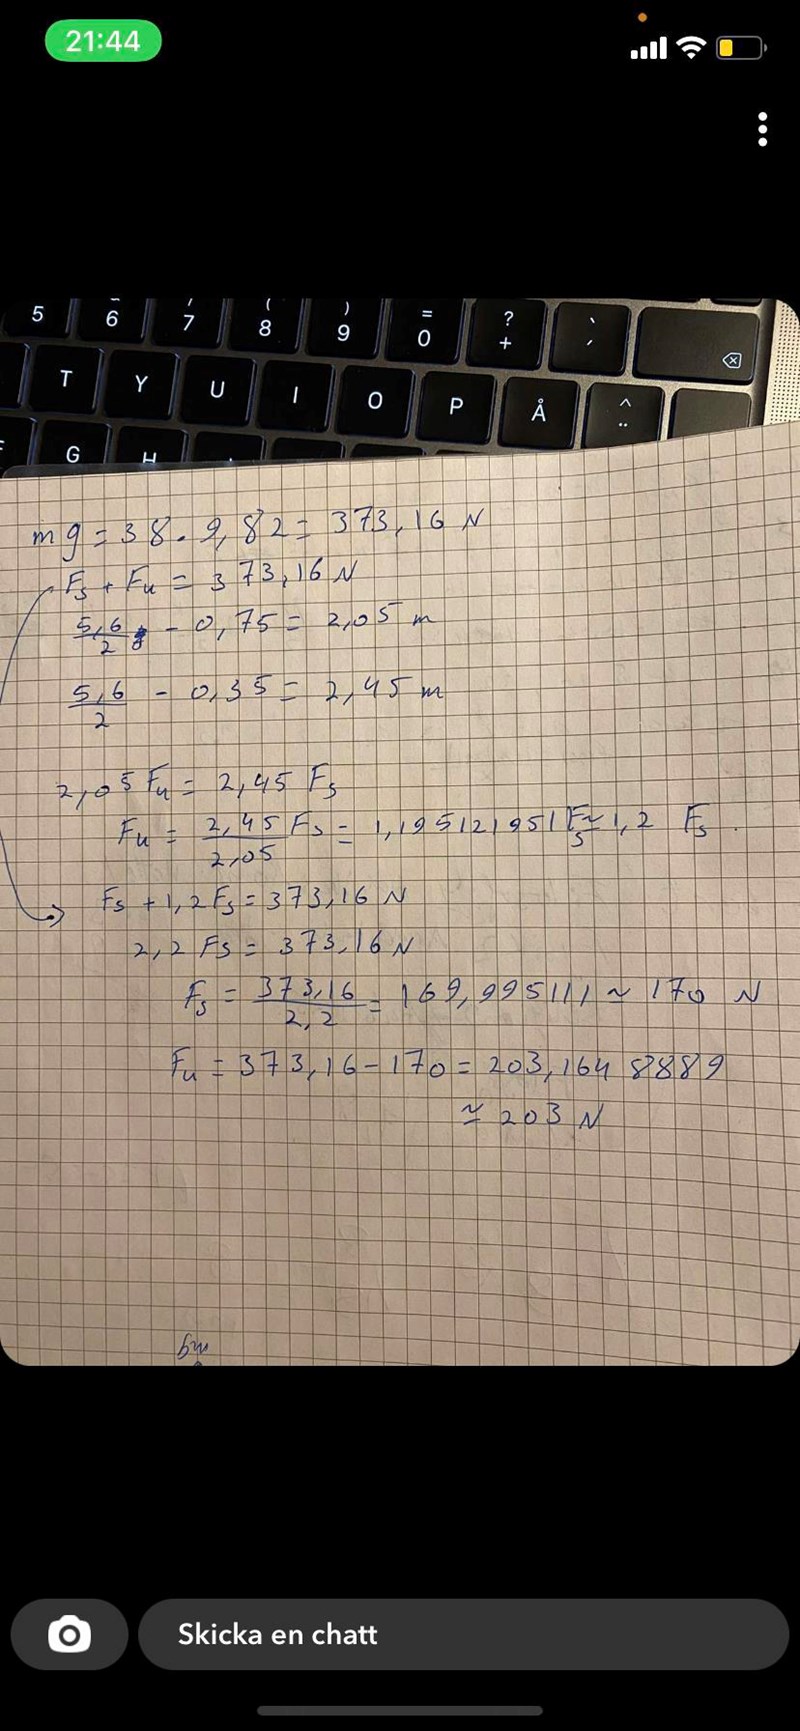 21:44
5 6 7 ( 8 ) 9 = 0 ? + ` ´
T Y U I O P Å ^ ¨
G H
mg = 38 · 9,82 = 373,16 N
Fs + Fu = 373,16 N
5,6/2 - 0,75 = 2,05 m
5,6/2 - 0,35 = 2,45 m
2,05 Fu = 2,45 Fs
Fu = 2,45/2,05 Fs = 1,195121951 Fs ≈ 1,2 Fs.
Fs + 1,2 Fs = 373,16 N
2,2 Fs = 373,16 N
Fs = 373,16/2,2 = 169,995111 ≈ 170 N
Fu = 373,16 - 170 = 203,1648889
≈ 203 N
mg
Skicka en chatt